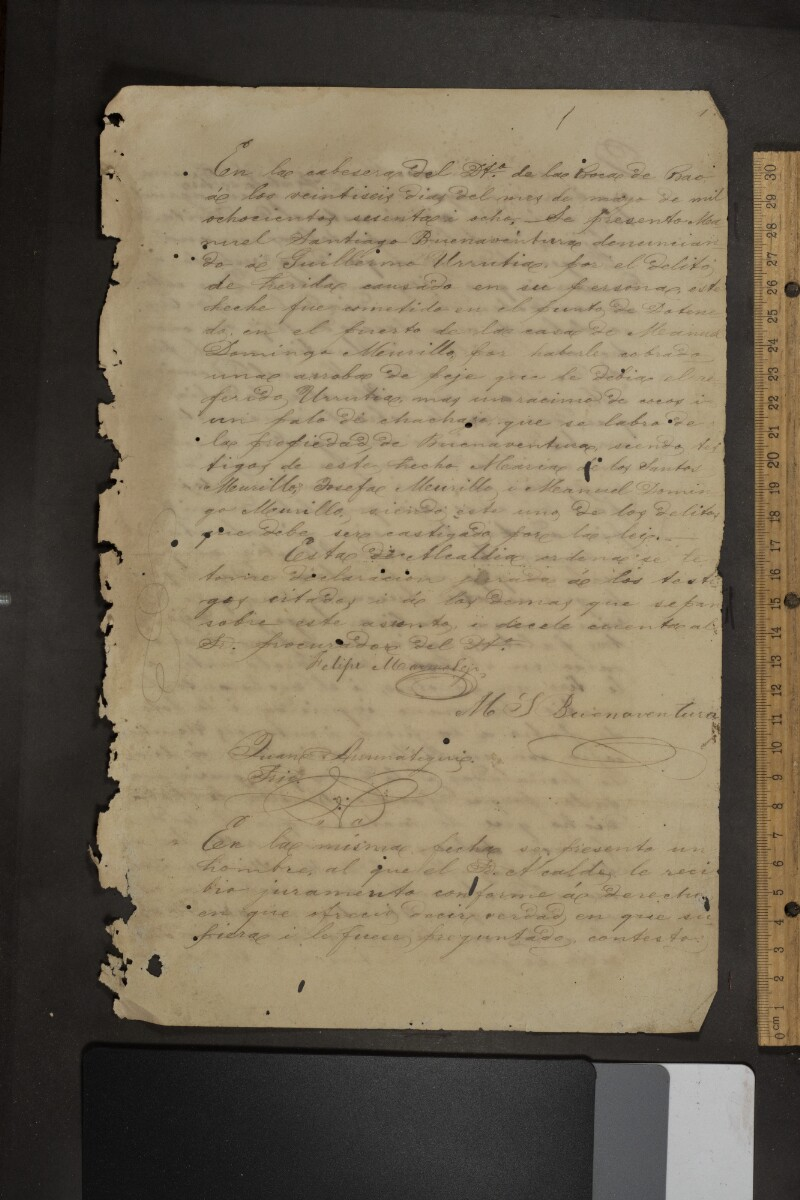 1
En la cabesera del Dto. de la Boca de Bae
á los veintiseis dias del mes de mayo de mil
ochocientos sesenta i ocho. Se presento Ma
nuel Santiago Buenaventura denuncian
do á Guillermo Urrutia, por el delito
de herida causado en su persona, este
heche fue cometido en el punto de
do, en el puerto de la casa de Manuel
Domingo Mourillo, por haberle cobrado
una arroba de peje que le debia el re
ferido Urrutia, mas un racimo de cocos i
un palo de chachajo que se labro de
la propiedad de Buenaventura, siendo tes
tigos de este hecho Maria de los Santos
Mourillo, Josefa Mourillo, i Manuel Domin
go Mourillo, siendo este uno de los delitos
que debe ser castigado por la lei.
Esta Alcaldia ordena se le
tome declaracion jurada á los testi
gos citados i á los demas que sepan
sobre este asunto, i decele cuenta al
S. procurador del Dto.
Felipe
M S Buenaventura
Juan
Srio
En la misma fecha se presento un
hombre, al que el S. Alcalde le reci
bio juramento conforme á derecho
en que ofrecio decir verdad en que su
piera i le fuese preguntado, contesto: